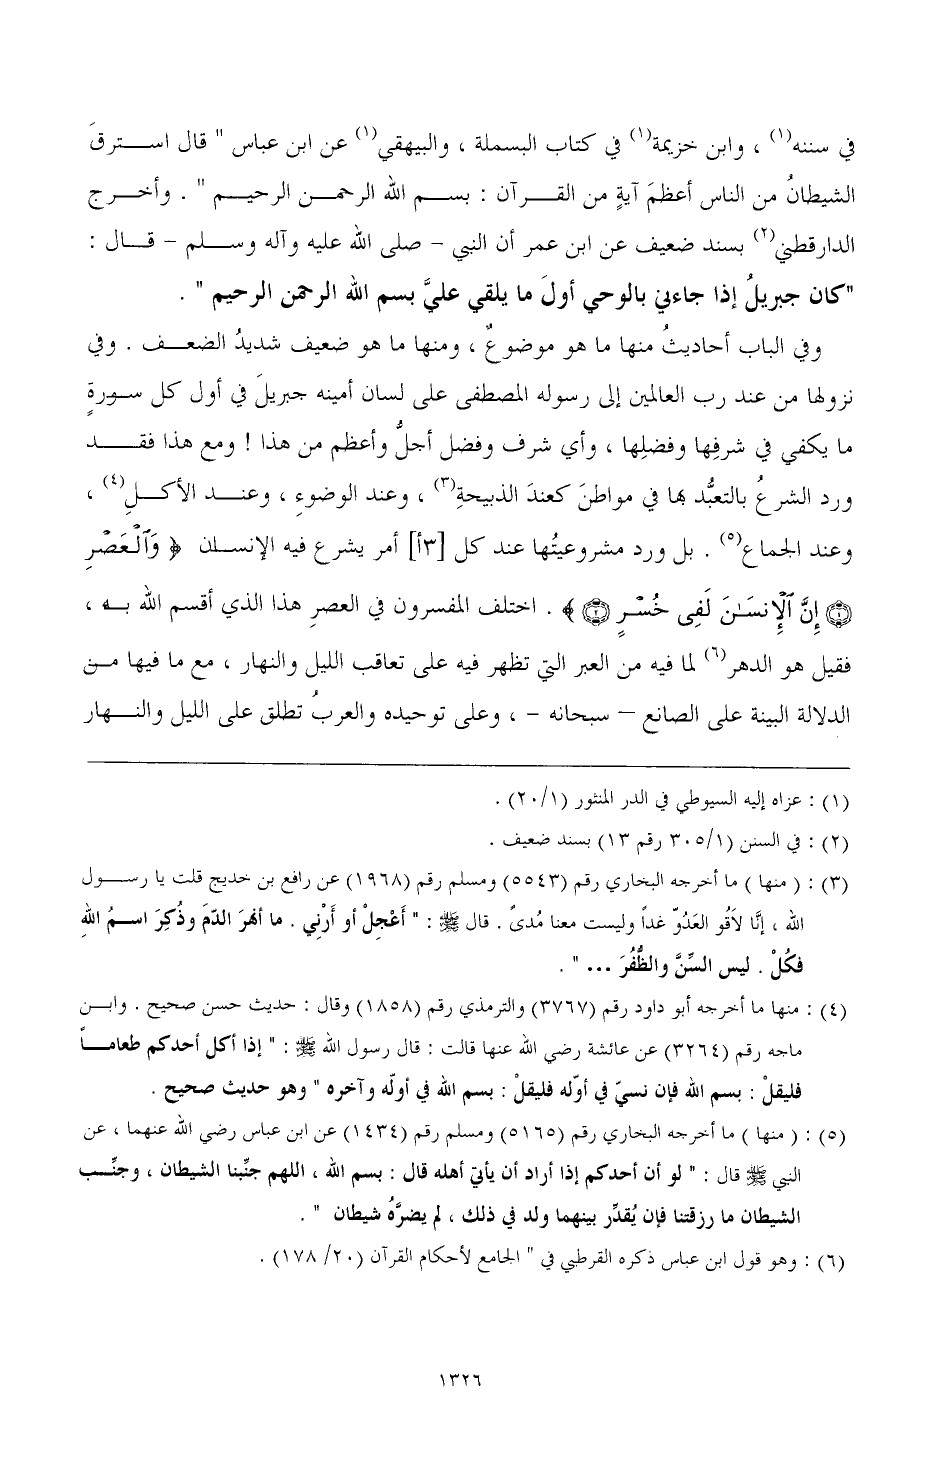 في سننه(١) ، وابن خزيمة(١) في كتاب البسملة ، والبيهقي(١) عن ابن عباس " قال استرقَ
الشيطانُ من الناس أعظمَ آيةٍ من القرآن : بسم الله الرحمن الرحيم " . وأخرج
الدارقطني(٢) بسند ضعيف عن ابن عمر أن النبي – صلى الله عليه وآله وسلم – قال :
"كان جبريلُ إذا جاءني بالوحي أولَ ما يلقي عليَّ بسم الله الرحمن الرحيم " .
وفي الباب أحاديثُ منها ما هو موضوعٌ ، ومنها ما هو ضعيف شديدُ الضعف . وفي
نزولها من عند رب العالمين إلى رسوله المصطفى على لسان أمينه جبريلَ في أول كل سورةٍ
ما يكفي في شرفِها وفضلِها ، وأي شرف وفضل أجلُّ وأعظم من هذا ! ومع هذا فقد
ورد الشرعُ بالتعبُّد بها في مواطنَ كعندَ الذبيحةِ(٣) ، وعند الوضوءِ ، وعند الأكلِ(٤) ،
وعند الجماع(٥) . بل ورد مشروعيتُها عند كل [٣أ] أمر يشرع فيه الإنسان ﴿ وَٱلْعَصْرِ
۝١ إِنَّ ٱلْإِنسَـٰنَ لَفِى خُسْرٍ ۝٢ ﴾ . اختلف المفسرون في العصرِ هذا الذي أقسم الله به ،
فقيل هو الدهر(٦) لما فيه من العبر التي تظهر فيه على تعاقب الليل والنهار ، مع ما فيها من
الدلالة البينة على الصانع – سبحانه – ، وعلى توحيده والعربُ تطلق على الليل والنهار
(١) : عزاه إليه السيوطي في الدر المنثور (٢٠/١) .
(٢) : في السنن (٣٠٥/١ رقم ١٣) بسند ضعيف .
(٣) : ( منها ) ما أخرجه البخاري رقم (٥٥٤٣) ومسلم رقم (١٩٦٨) عن رافع بن خديج قلت يا رسول
الله ، إنَّا لاَقُو العَدُوّ غداً وليست معنا مُدىً . قال ﷺ : " أَعْجِلْ أو أَرْنِي . ما أنهَرَ الدّمَ وذُكِرَ اسمُ اللهِ
فكُلْ . ليس السِّنَّ والظُّفُرَ ... " .
(٤) : منها ما أخرجه أبو داود رقم (٣٧٦٧) والترمذي رقم (١٨٥٨) وقال : حديث حسن صحيح . وابن
ماجه رقم (٣٢٦٤) عن عائشة رضي الله عنها قالت : قال رسول الله ﷺ : " إذا أكل أحدكم طعاماً
فليقلْ : بسم الله فإن نسيّ في أوّله فليقلْ : بسم الله في أولّه وآخره " وهو حديث صحيح .
(٥) : ( منها ) ما أخرجه البخاري رقم (٥١٦٥) ومسلم رقم (١٤٣٤) عن ابن عباس رضي الله عنهما ، عن
النبي ﷺ قال : " لو أن أحدكم إذا أراد أن يأتيّ أهله قال : بسم الله ، اللهم جنِّبنا الشيطان ، وجنِّب
الشيطان ما رزقتنا فإن يُقدِّر بينهما ولد في ذلك ، لم يضرَّهُ شيطان " .
(٦) : وهو قول ابن عباس ذكره القرطبي في " الجامع لأحكام القرآن (١٧٨/٢٠) .
١٣٢٦